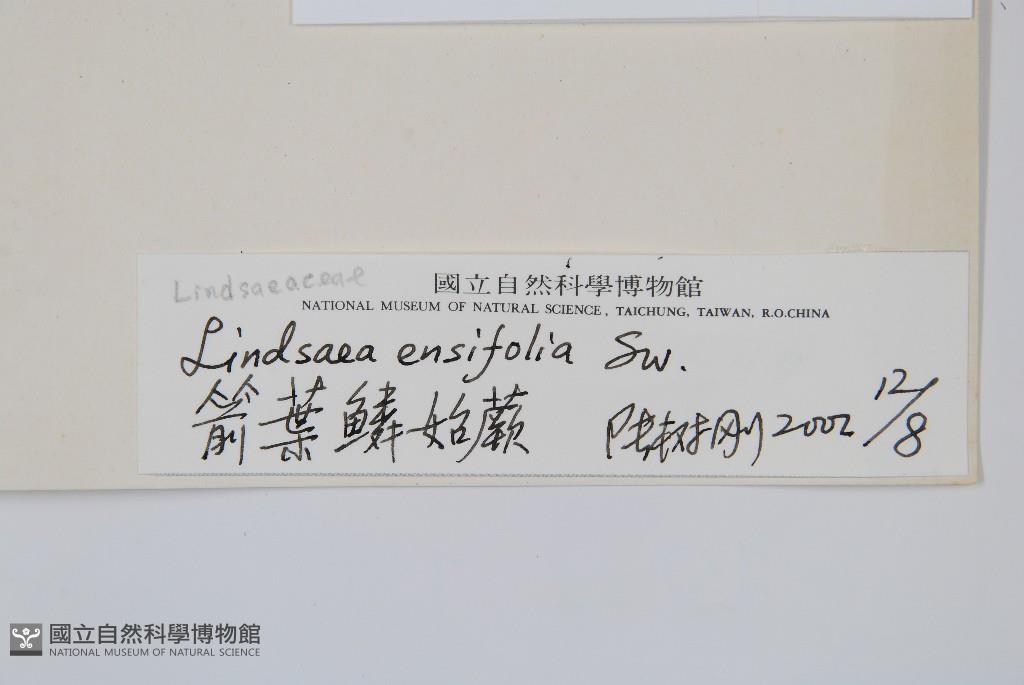 Lindsaeaceae
國立自然科學博物館
NATIONAL MUSEUM OF NATURAL SCIENCE, TAICHUNG, TAIWAN, R.O.CHINA
Lindsaea ensifolia Sw.
箭葉鱗始蕨 陆树刚 2002 12/8
國立自然科學博物館
NATIONAL MUSEUM OF NATURAL SCIENCE